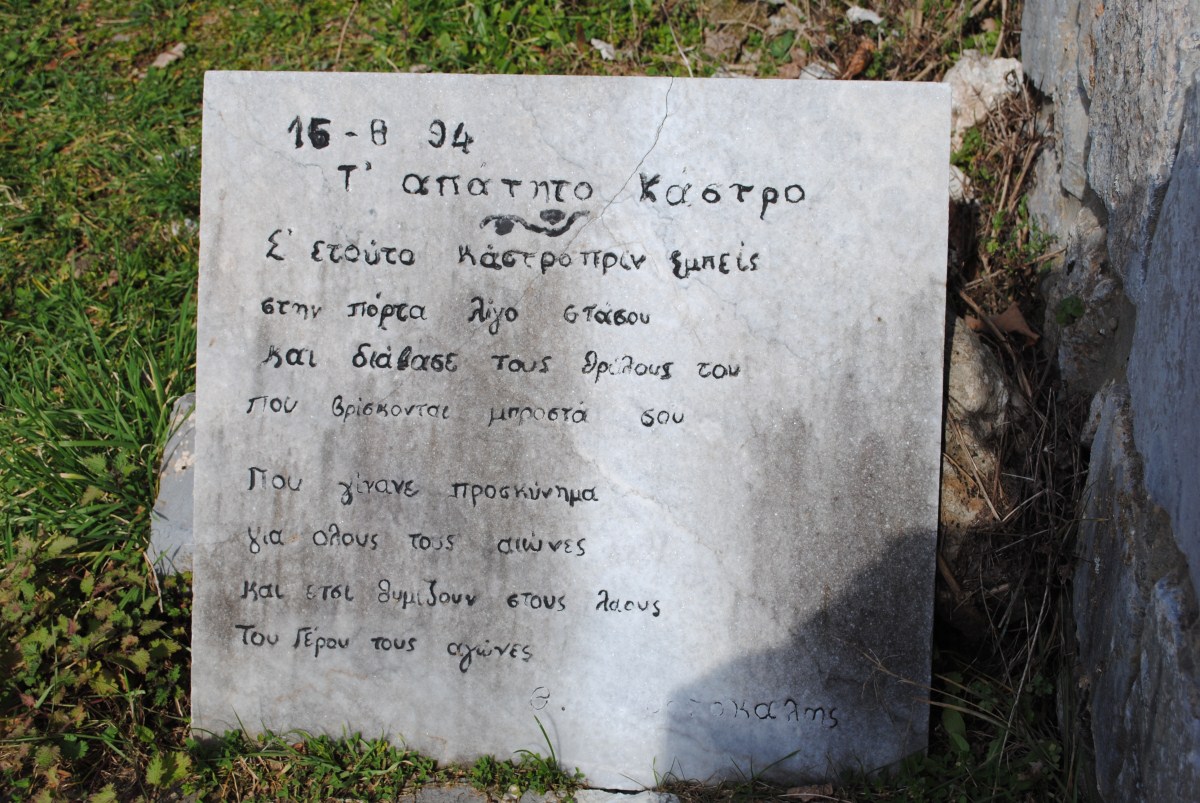 15-8 94
Τ' απάτητο Κάστρο
Σ' ετούτο Κάστρο πριν εμπείς
στην πόρτα λίγο στάσου
Και διάβασε τους θρύλους του
Που βρίσκονται μπροστά σου
Που γίνανε προσκύνημα
για ολους τους αιώνες
Και ετσι θυμίζουν στους λαους
Του Γέρου τους αγώνες
Θ.